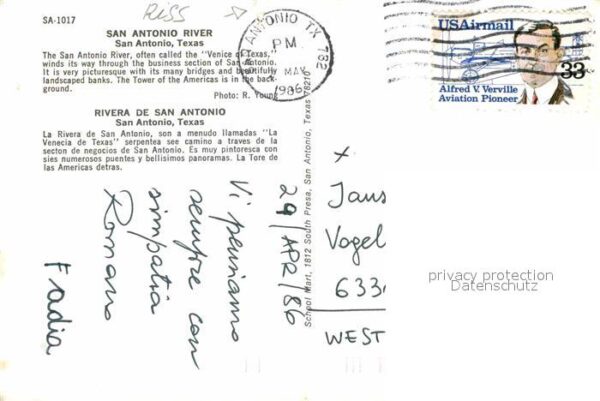 SA-1017
RISS
SAN ANTONIO RIVER
San Antonio, Texas
The San Antonio River, often called the "Venice of Texas,"
winds its way through the business section of San Antonio.
It is very picturesque with its many bridges and beautifully
landscaped banks. The Tower of the Americas is in the back-
ground.
Photo: R. Young
RIVERA DE SAN ANTONIO
San Antonio, Texas
La Rivera de San Antonio, son a menudo llamadas "La
Venecia de Texas" serpentea see camino a traves de la
secton de negocios de San Antonio. Es muy pintoresca con
sies numerosos puentes y bellisimos panoramas. La Tore de
las Americas detras.
SAN ANTONIO TX 782
PM
MAY
1986
USAirmail
33
Alfred V. Verville
Aviation Pioneer
School Mart, 1812 South Presa, San Antonio, Texas 78210
29/APR/86
Vi pensiamo
sempre con
simpatia
Romano
Fadia
x
Jans
Vogel
633
WEST
privacy protection
Datenschutz